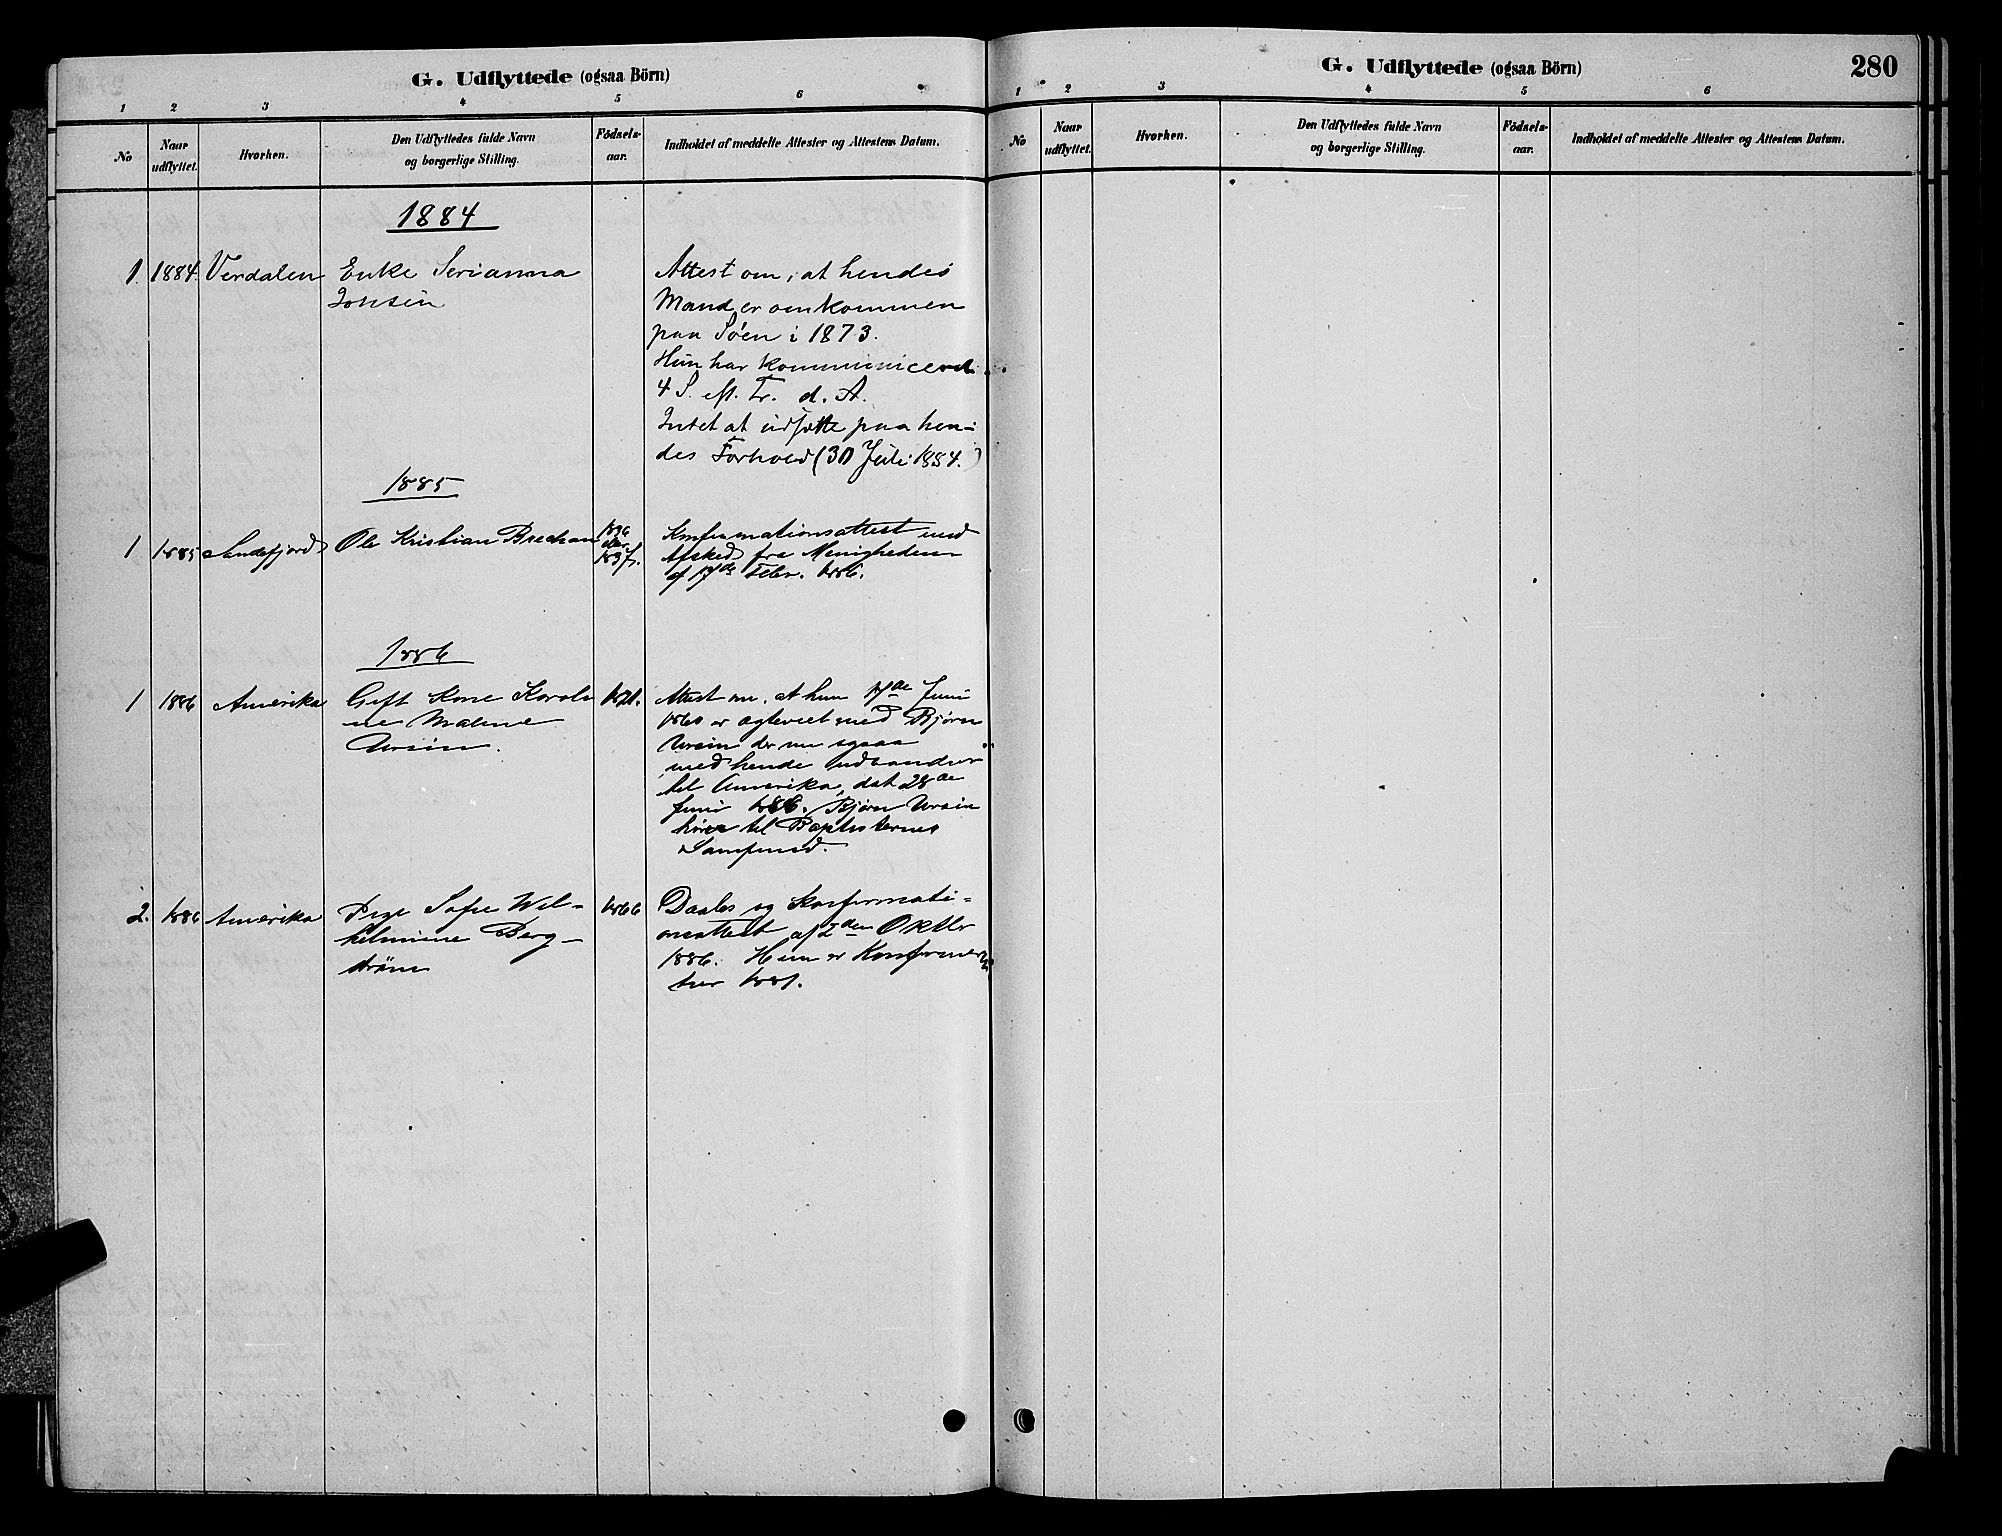 G. Udflyttede (ogsaa Börn)
1 2 3 4 5 6
No
Naar udflyttet.
Hvorhen.
Den Udflyttedes fulde Navn
og borgerlige Stilling.
Födsels-
aar.
Indholdet af meddelte Attester og Attestens Datum.
1884
1. 1884. Verdalen Enke Serianna Attest om, at hendes
Jonsen Mand er omkommen
paa Søen i 1873.
Hun har kommuniceret
4 S. eft. Tr. d. A.
Intet at udsætte paa hen-
des Forhold (30 Juli 1884.)
1885
1 1885 Sandefjord Ole Kristian Brechan 1836 Konfirmationsattest med
eller Afsked fra Menigheden
1837. af 17de Febr. 1886.
1886
1 1886 Amerika Gift Kone Karoli- 1821. Attest om, at hun 17de Juni
ne Malene 1860 er ægteviet med Bjørn
Ursin. Ursin der nu ogsaa
med hende udvandrer
til Amerika, dat 28de
Juni 1886. Bjørn Ursin
hører til Baptisternes
Samfund.
2. 1886 Amerika Pige Sofie Wil- 1866 Daabs og Konfirmati-
helmine Berg- onsattest af 2den Oktbr
strøm 1886. Hun er Konfirmeret
her 1881.
G. Udflyttede (ogsaa Börn) 280
1 2 3 4 5 6
No
Naar udflyttet.
Hvorhen.
Den Udflyttedes fulde Navn
og borgerlige Stilling.
Födsels-
aar.
Indholdet af meddelte Attester og Attestens Datum.